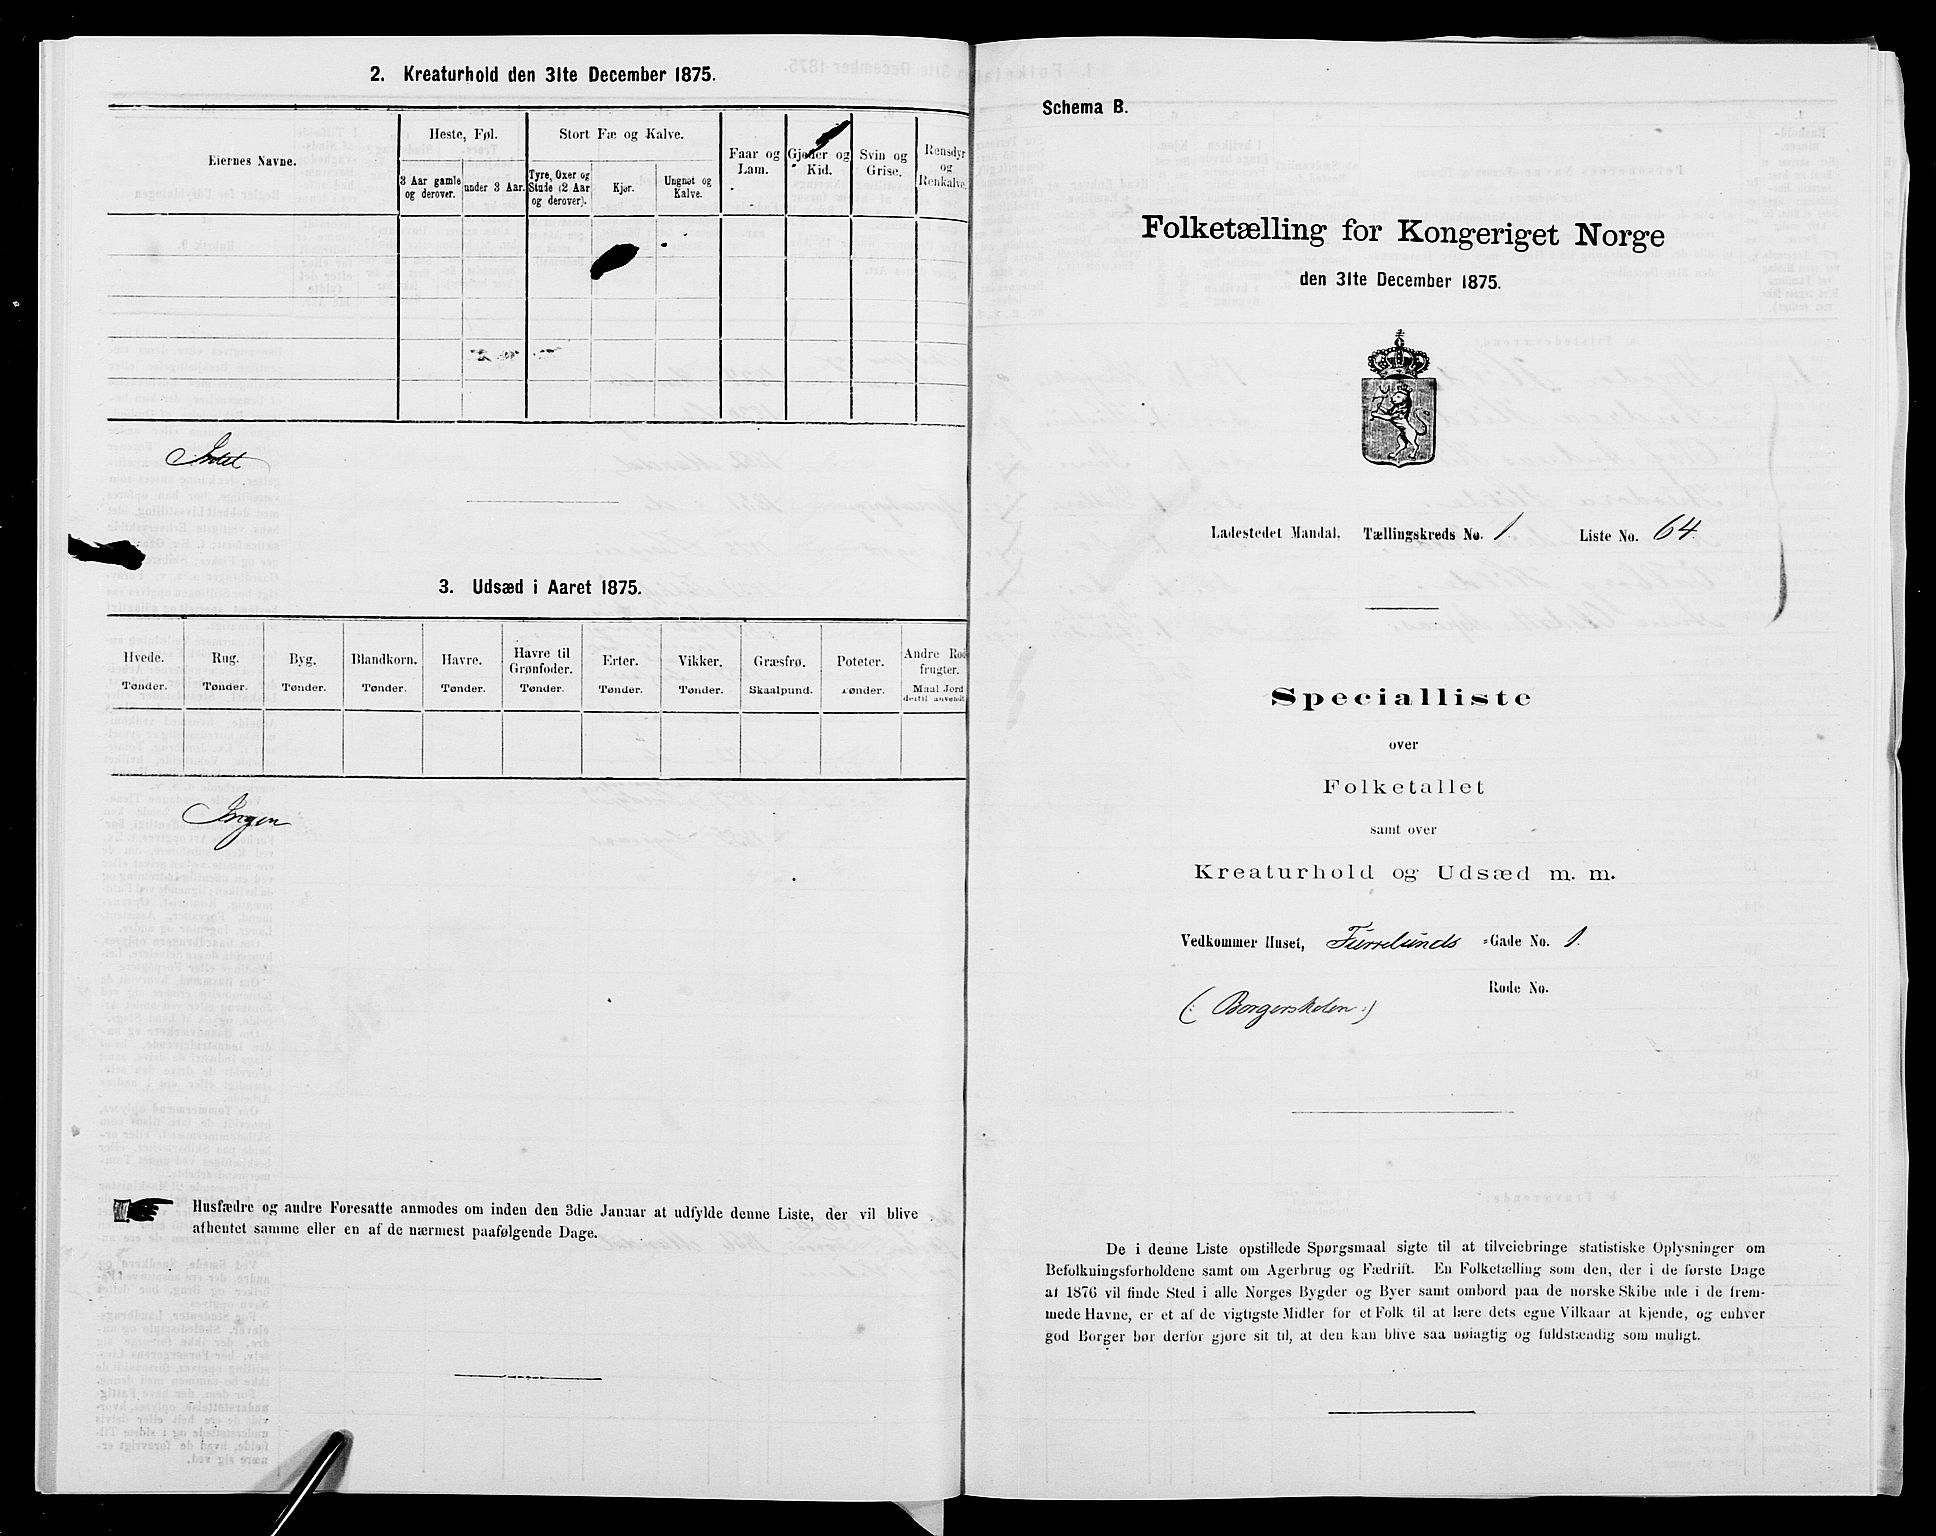 2. Kreaturhold den 31te December 1875.
Eiernes Navne.
Heste, Føl.
3 Aar gamle og derover.
under 3 Aar.
Stort Fæ og Kalve.
Tyre, Oxer og Stude (2 Aar og derover).
Kjør.
Ungnøt og Kalve.
Faar og Lam.
Gjeder og Kid.
Svin og Grise.
Rensdyr og Renkalve.
Intet
3. Udsæd i Aaret 1875.
Hvede. Tønder.
Rug. Tønder.
Byg. Tønder.
Blandkorn. Tønder.
Havre. Tønder.
Havre til Grønfoder. Tønder.
Erter. Tønder.
Vikker. Tønder.
Græsfrø. Skaalpund.
Poteter. Tønder.
Andre Rodfrugter. Maal Jord dertil anvendt.
Ingen
Husfædre og andre Foresatte anmodes om inden den 3die Januar at udfylde denne Liste, der vil blive
afhentet samme eller en af de nærmest paafølgende Dage.
Schema B.
Folketælling for Kongeriget Norge
den 31te December 1875.
Ladestedet Mandal. Tællingskreds No. 1. Liste No. 64
Specialliste
over
Folketallet
samt over
Kreaturhold og Udsæd m. m.
Vedkommer Huset, Furrelunds -Gade No. 1.
Rode No.
(: Borgerskolen :)
De i denne Liste opstillede Spørgsmaal sigte til at tilveiebringe statistiske Oplysninger om
Befolkningsforholdene samt om Agerbrug og Fædrift. En Folketælling som den, der i de første Dage
af 1876 vil finde Sted i alle Norges Bygder og Byer samt ombord paa de norske Skibe ude i de frem-
mede Havne, er et af de vigtigste Midler for et Folk til at lære dets egne Vilkaar at kjende, og enhver
god Borger bør derfor gjøre sit til, at den kan blive saa nøiagtig og fuldstændig som muligt.